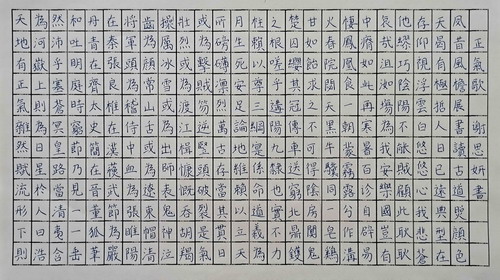 天地有正氣雜然賦流形下則
為河嶽上則為日星於人曰浩
然沛乎塞蒼冥皇路當清夷含
和吐明庭時窮節乃見一一垂
丹青在齊太史簡在晉董狐筆
在秦張良椎在漢蘇武節為嚴
將軍頭為嵇侍中血為張睢陽
齒為顏常山舌或為遼東帽清
操厲冰雪或為出師表鬼神泣
壯烈或為渡江楫慷慨吞胡羯
或為擊賊笏逆豎頭破裂是氣
所磅礴凜烈萬古存當其貫日
月生死安足論地維賴以立天
柱賴以尊三綱實係命道義為
之根嗟予遘陽九隸也實不力
楚囚纓其冠傳車送窮北鼎鑊
甘如飴求之不可得陰房闃鬼
火春院閟天黑牛驥同一皂雞
棲鳳凰食一朝蒙霧露分作溝
中瘠如此再寒暑百沴自辟易
哀哉沮洳場為我安樂國豈有
他繆巧陰陽不能賊顧此耿耿
存仰視浮雲白悠悠我心悲蒼
天曷有極哲人日已遠典型在
夙昔風檐展書讀古道照顏色
正氣歌 謝思妍書